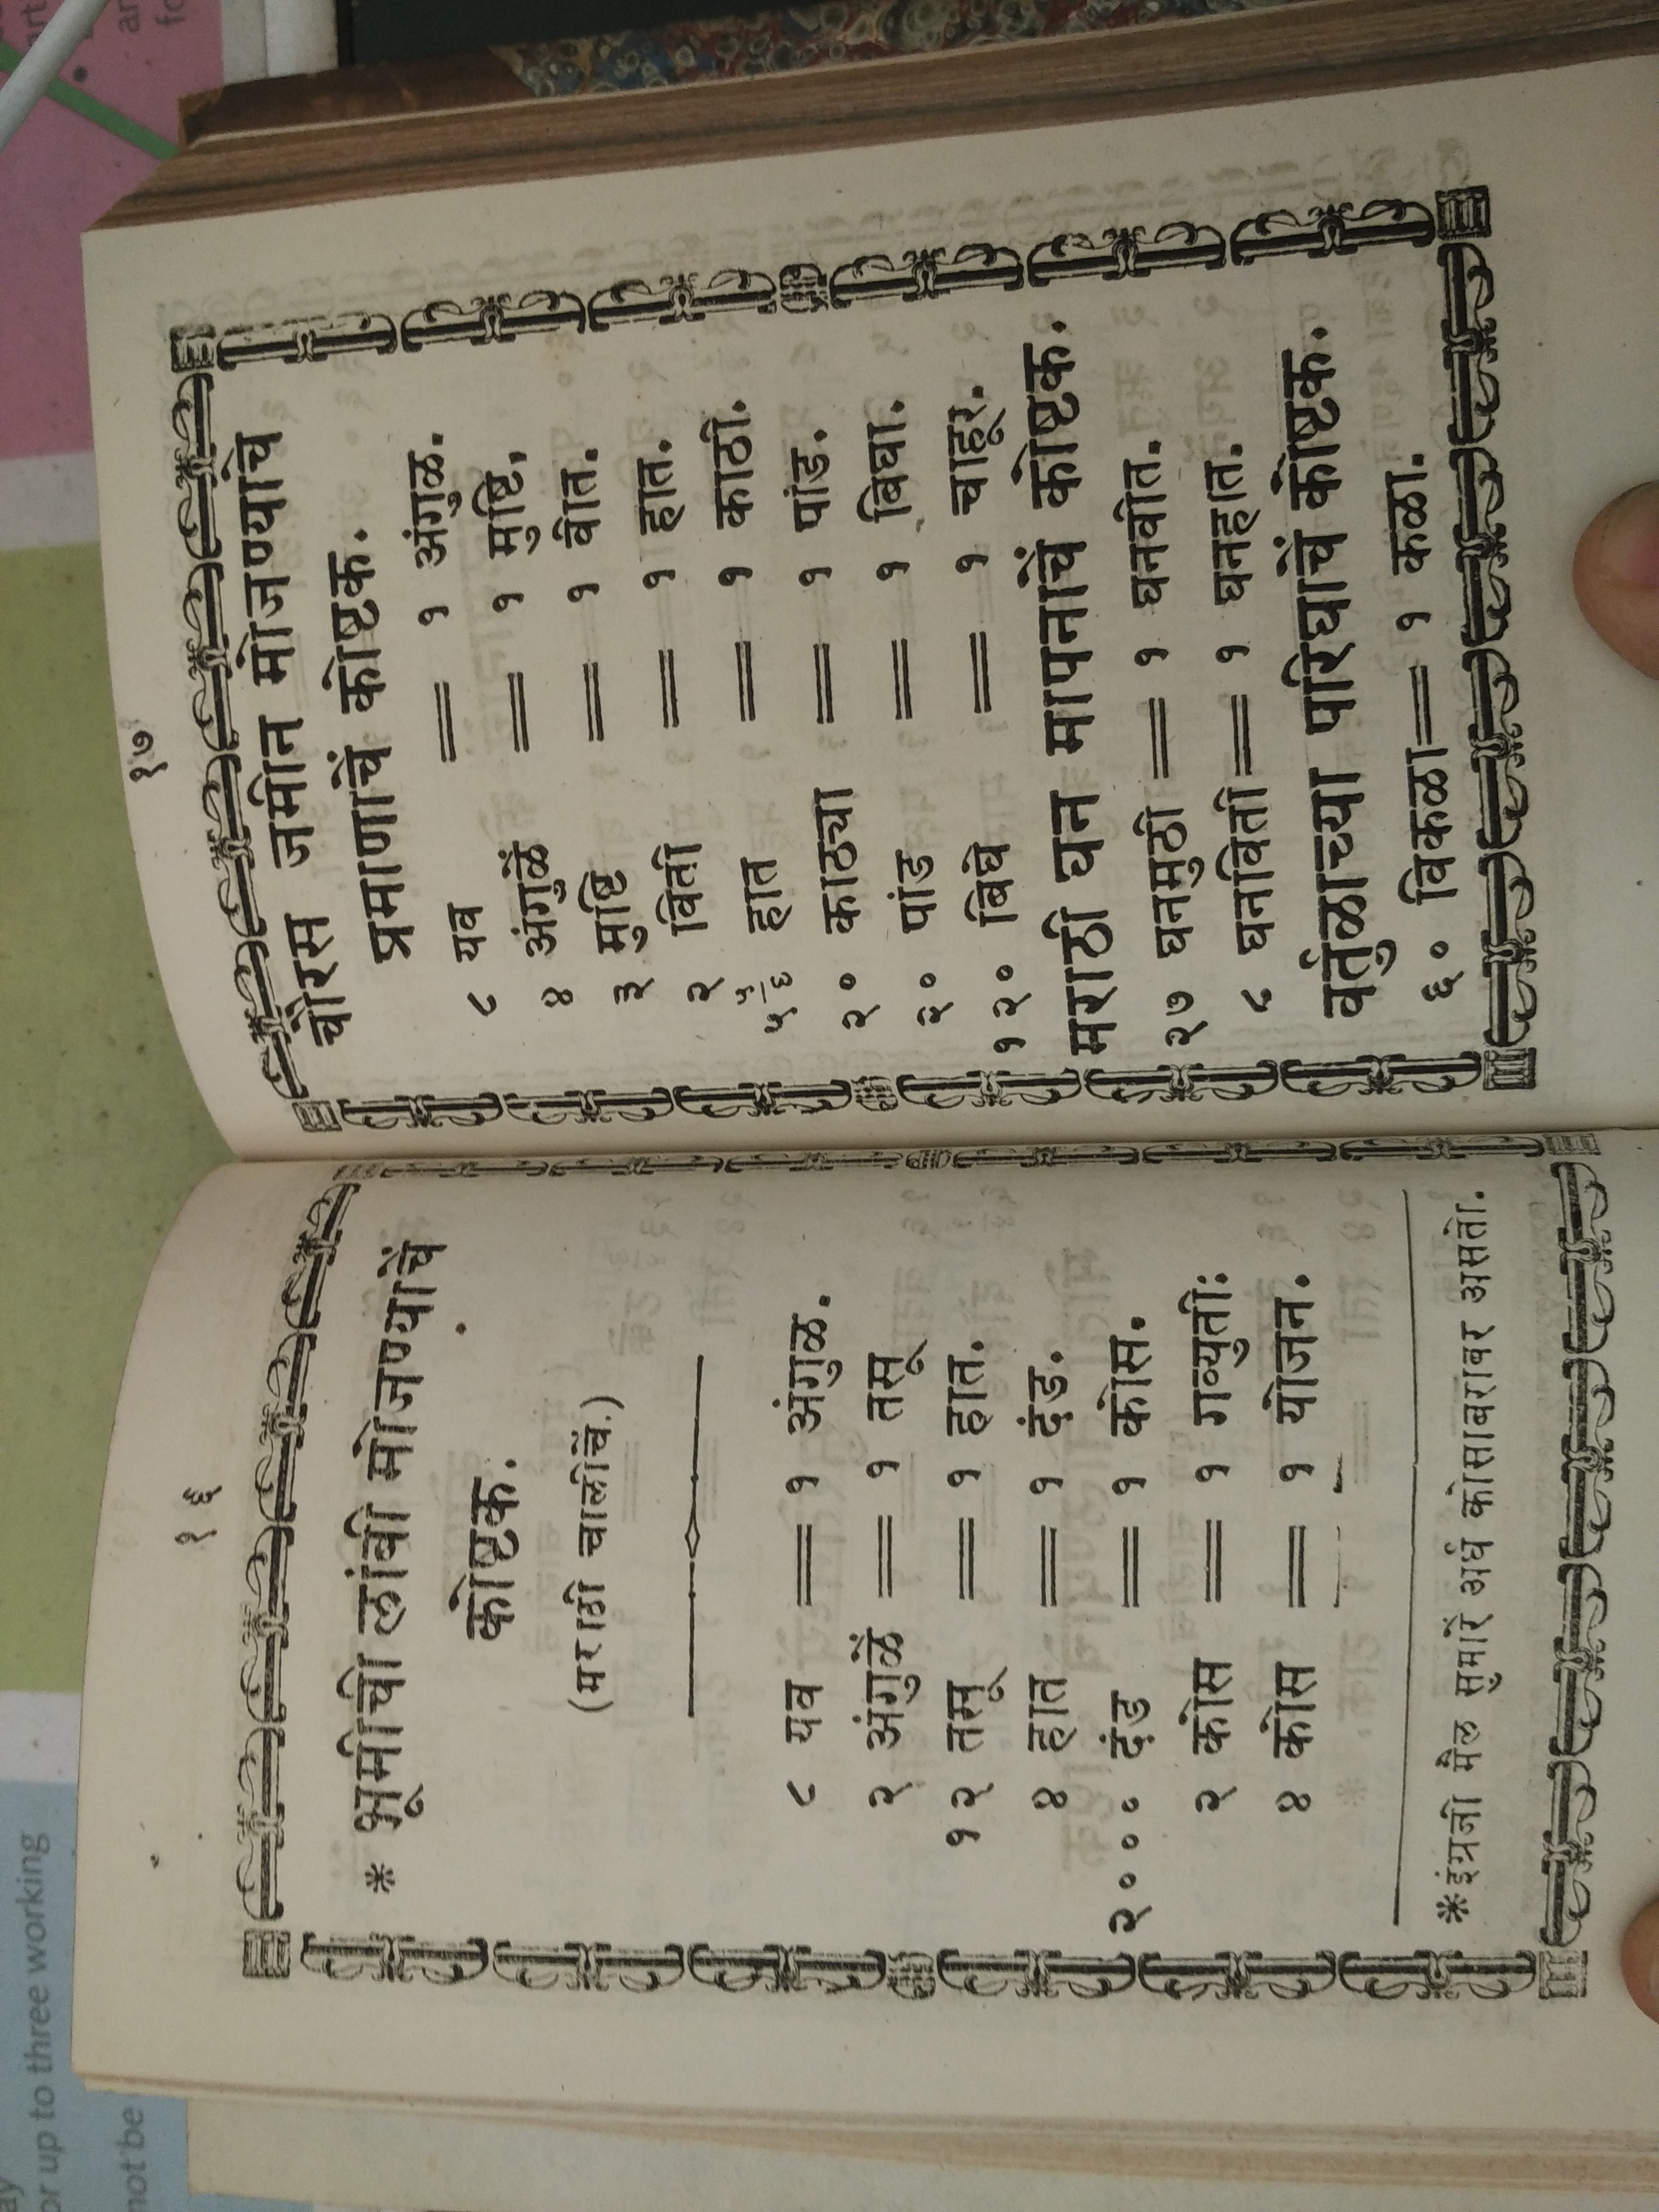 १६
* भूमीची लांबी मोजण्याचें
कोष्टक.
(मराठी चालीचें.)
८ यव = १ अंगुळ.
२ अंगुळें = १ तसू
१२ तसू = १ हात.
४ हात = १ दंड.
२००० दंड = १ कोस.
२ कोस = १ गव्युती:
४ कोस = १ योजन.
*इंग्रजी मैल सुमारें अर्ध कोसाबराबर असतो.
१७
चौरस जमीन मोजण्याचें
प्रमाणाचें कोष्टक.
८ यव = १ अंगुळ.
४ अंगुळें = १ मुष्टि,
३ मुष्टि = १ वीत.
२ विती = १ हात.
५ ५/६ हात = १ काठी.
२० काठ्या = १ पांड.
२० पांड = १ बिघा.
१२० बिघे = १ चाहूर.
मराठी घन मापनाचें कोष्टक.
२७ घनमुठी = १ घनवीत.
८ घनविती = १ घनहात.
वर्तुळाच्या परिघाचें कोष्टक.
६० विकळा = १ कळा.
or up to three working
not be